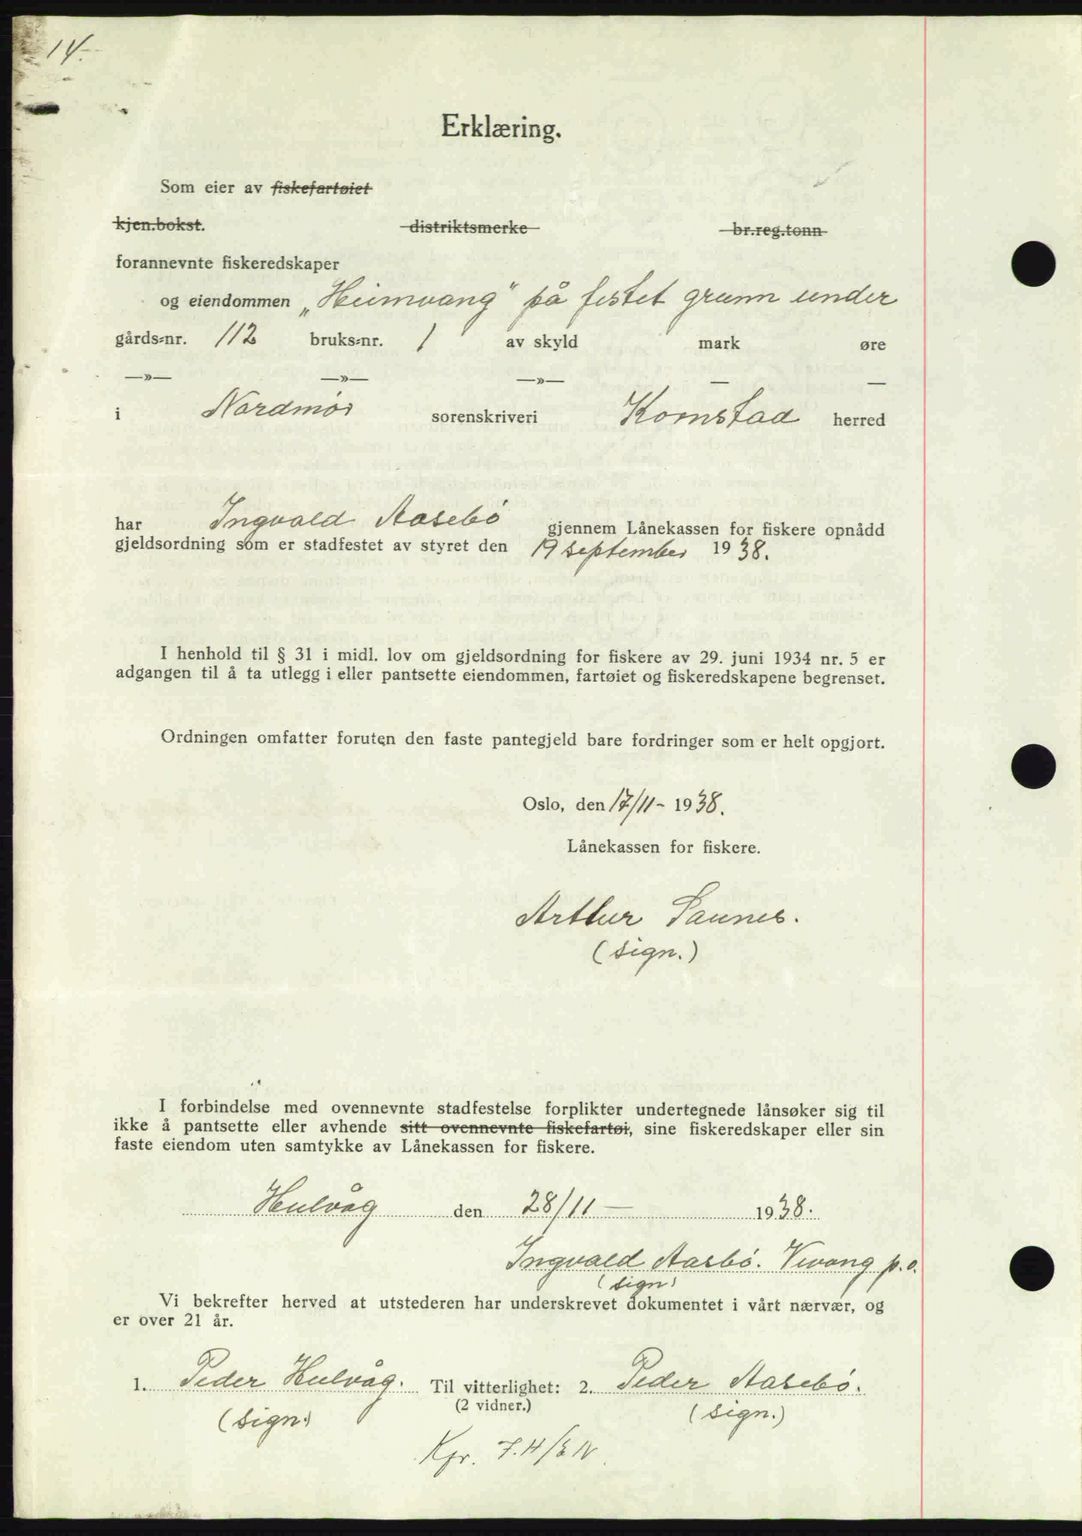 14.
Erklæring.
Som eier av fiskefartøiet
kjen.bokst. distriktsmerke br.reg.tonn
forannevnte fiskeredskaper
og eiendommen „Heimvang" på festet grunn under
gårds-nr. 112 bruks-nr. 1 av skyld mark øre
—»— —»— —»— — —
i Nordmør sorenskriveri Kornstad herred
har Ingvald Aasebö gjennem Lånekassen for fiskere opnådd
gjeldsordning som er stadfestet av styret den 19 september 1938.
I henhold til § 31 i midl. lov om gjeldsordning for fiskere av 29. juni 1934 nr. 5 er
adgangen til å ta utlegg i eller pantsette eiendommen, fartøiet og fiskeredskapene begrenset.
Ordningen omfatter foruten den faste pantegjeld bare fordringer som er helt opgjort.
Oslo, den 17/11- 1938.
Lånekassen for fiskere.
Arthur Saunes.
(sign.)
I forbindelse med ovennevnte stadfestelse forplikter undertegnede lånsøker sig til
ikke å pantsette eller avhende sitt ovennevnte fiskefartøi, sine fiskeredskaper eller sin
faste eiendom uten samtykke av Lånekassen for fiskere.
Hulvåg den 28/11 — 1938.
Ingvald Aasbö. Vevang p.o.
(sign)
Vi bekrefter herved at utstederen har underskrevet dokumentet i vårt nærvær, og
er over 21 år.
1. Peder Hulvåg. Til vitterlighet: 2. Peder Aasebö.
(2 vidner.)
(sign.) (sign.)
Kfr.